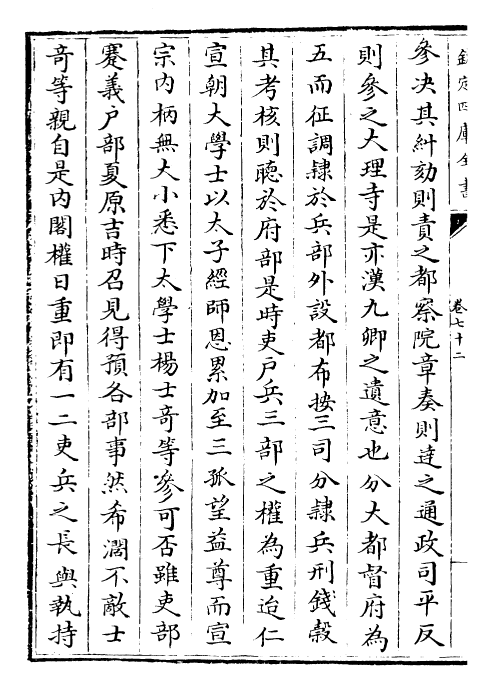 欽定四庫全書
卷七十二
參决其糾劾則責之都察院章奏則達之通政司平反
則參之大理寺是亦漢九卿之遺意也分大都督府為
五而征調隸於兵部外設都布按三司分隸兵刑錢穀
其考核則聽於府部是時吏户兵三部之權為重迨仁
宣朝大學士以太子經師恩累加至三孤望益尊而宣
宗内柄無大小悉下大學士楊士奇等參可否雖吏部
蹇義户部夏原吉時召見得預各部事然希濶不敵士
奇等親自是内閣權日重即有一二吏兵之長與執持